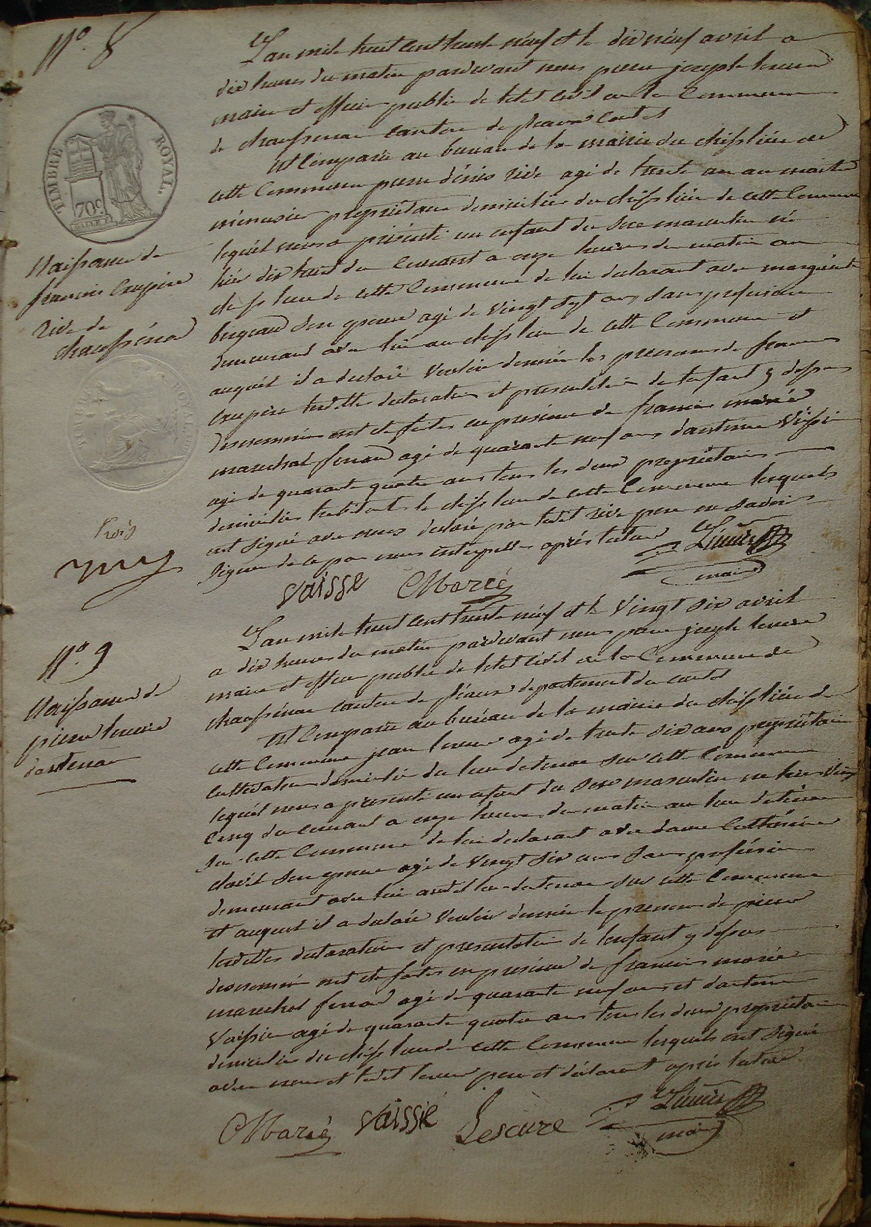 N.o 8
TIMBRE ROYAL.
70c
Naissance de
françois Crepin
rive de
chaussenac
N.o 9
Naissance de
pierre lescure
d'estenac
L'an mile huit cent trente neuf et le dix neuf avril a
dix heures du matin pardevant nous pierre joseph
maire et officier public de l'etat civil de la Commune
de chaussenac canton de pleaux Cantal
Est Comparu au bureau de la mairie du chef lieu de
cette Commune pierre denis rive agé de trente un an
menusier propriétaire domicilié du chef lieu de cette Commune
lequel nous a présenté un enfant du sexe masculin né
hier dix huit du Courant a onze heures du matin au
chef lieu de cette Commune de lui declarant et de marguerite
son epouse agé de vingt sept ans sans profession
demeurant avec lui au chef lieu de cette Commune et
auquel il a declaré vouloir donner les prenoms de françois
lesdittes declaration et presentation de l'enfant y dessus
denommé ont été faites en presence de françois marié
marechal ferrand agé de quarante neuf ans d'antoine Vaissié
agé de quarante quatre ans tous les deux propriétaires
domiciliés habitants le chef lieu de cette Commune lesquels
ont signé avec nous declaré par ledit rive pere ne savoir
signer de ce par nous interpellé après lecture
Vaissié Marié
maire
L'an mile huit cent trente neuf et le vingt six avril
a dix heures du matin pardevant nous pierre joseph
maire et officier public de l'etat civil de la Commune de
chaussenac canton de pleaux departement du cantal
Est Comparu au bureau de la mairie du chef lieu de
cette Commune jean lescure agé de trente six ans propriétaire
cultivateur domicilié du lieu d'estenac sur cette Commune
lequel nous a presenté un enfant du sexe masculin né hier vingt
Cinq du courant a onze heures du matin au lieu d'estenac
sur cette Commune de lui declarant et de dame Catherine
son epouse agé de vingt six ans sans profession
demeurant avec lui audit lieu d'estenac sur cette Commune
et auquel il a declaré vouloir donner le prenom de pierre
lesdittes declaration et presentation de l'enfant y dessus
denommé ont été faites en presence de françois marié
marechal ferrand agé de quarante neuf ans et d'antoine
Vaissié agé de quarante quatre ans tous les deux propriétaires
domiciliés du chef lieu de cette Commune lesquels ont signé
avec nous et ledit lescure pere et declarant après lecture
Marié Vaissié Lescure
maire